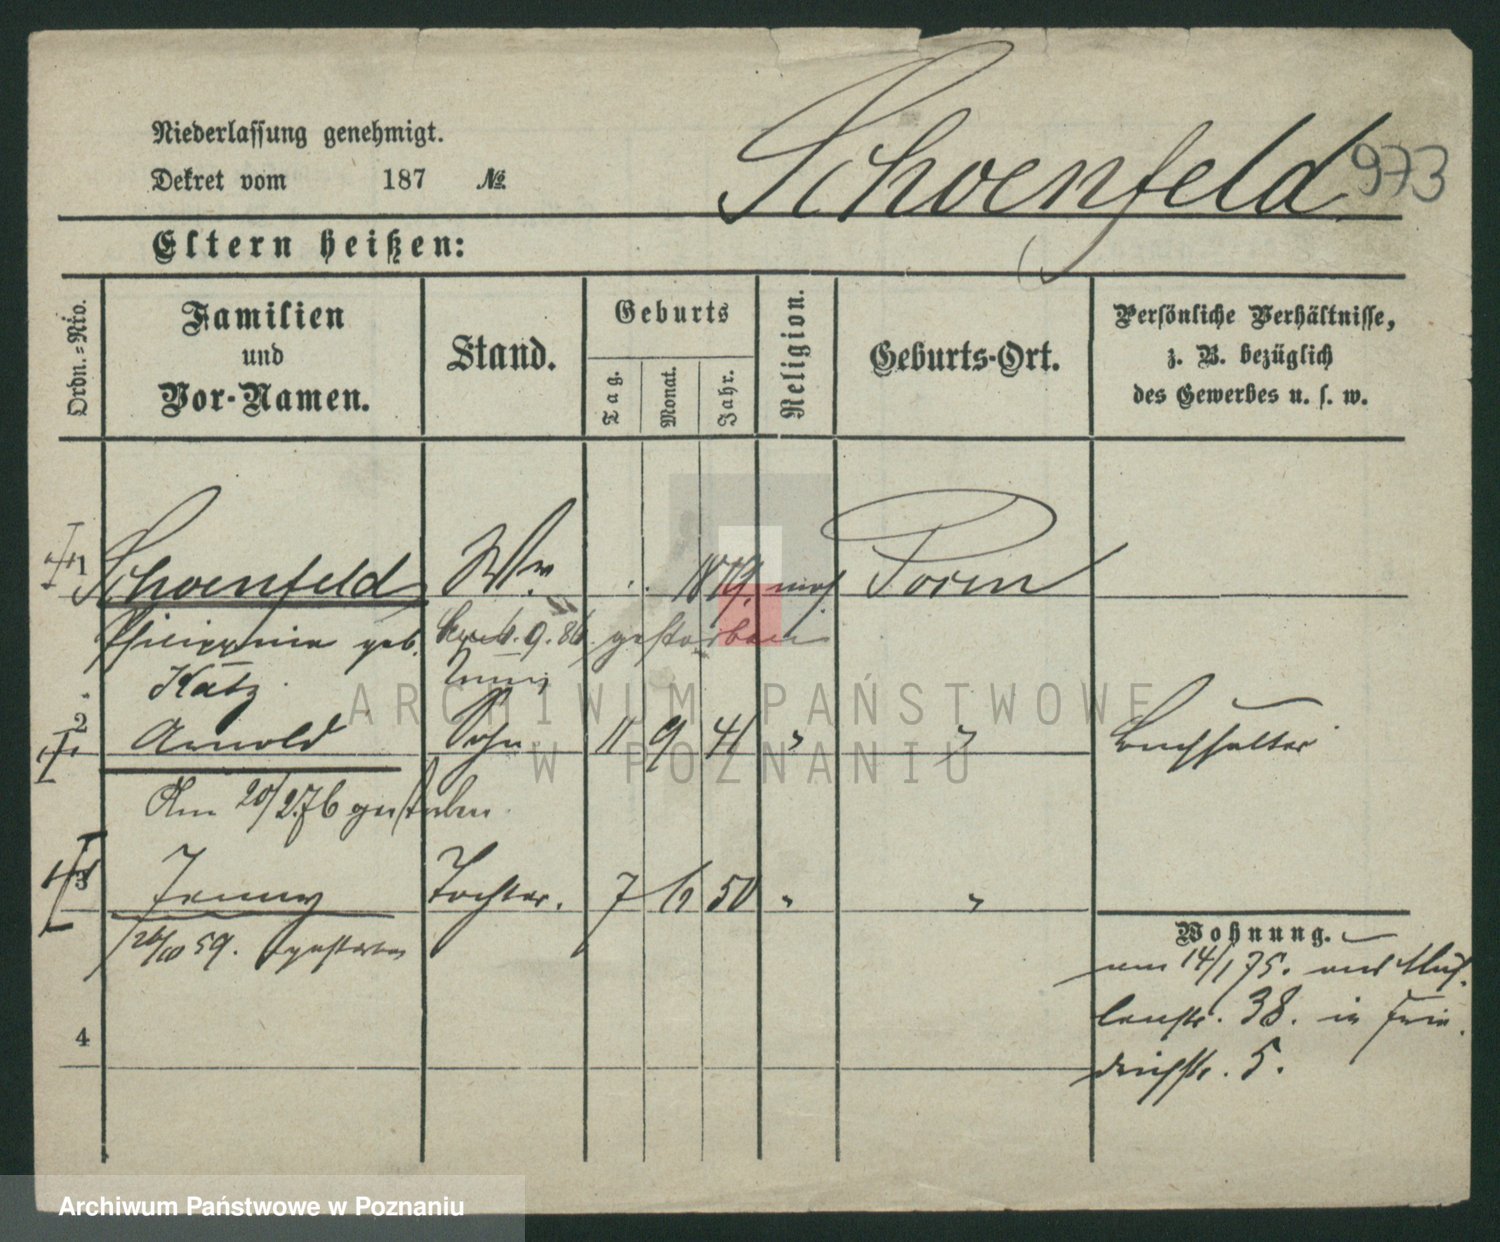 Niederlassung genehmigt.
Dekret vom 187 №
Schoenfeld
973
Eltern heißen:
Ordn.-Nro.
Familien
und
Vor-Namen.
Stand.
Geburts
Tag.
Monat.
Jahr.
Religion.
Geburts-Ort.
Persönliche Verhältnisse,
z. B. bezüglich
des Gewerbes u. s. w.
1 Schoenfeld Ww. mos. Posen
geb. 9. 86 gestorben
Katz
2 Arnold Sohn 11 9 41 " " Buchhalter
Am 20/2 76 gestorben.
3 Jenny Tochter. 7 12 50 " "
59. gestorben
Wohnung.
am 14/1 75. aus Müh-
lenstr. 38. in Frie-
drichstr. 5.
4
ARCHIWUM PAŃSTWOWE
W POZNANIU
Archiwum Państwowe w Poznaniu